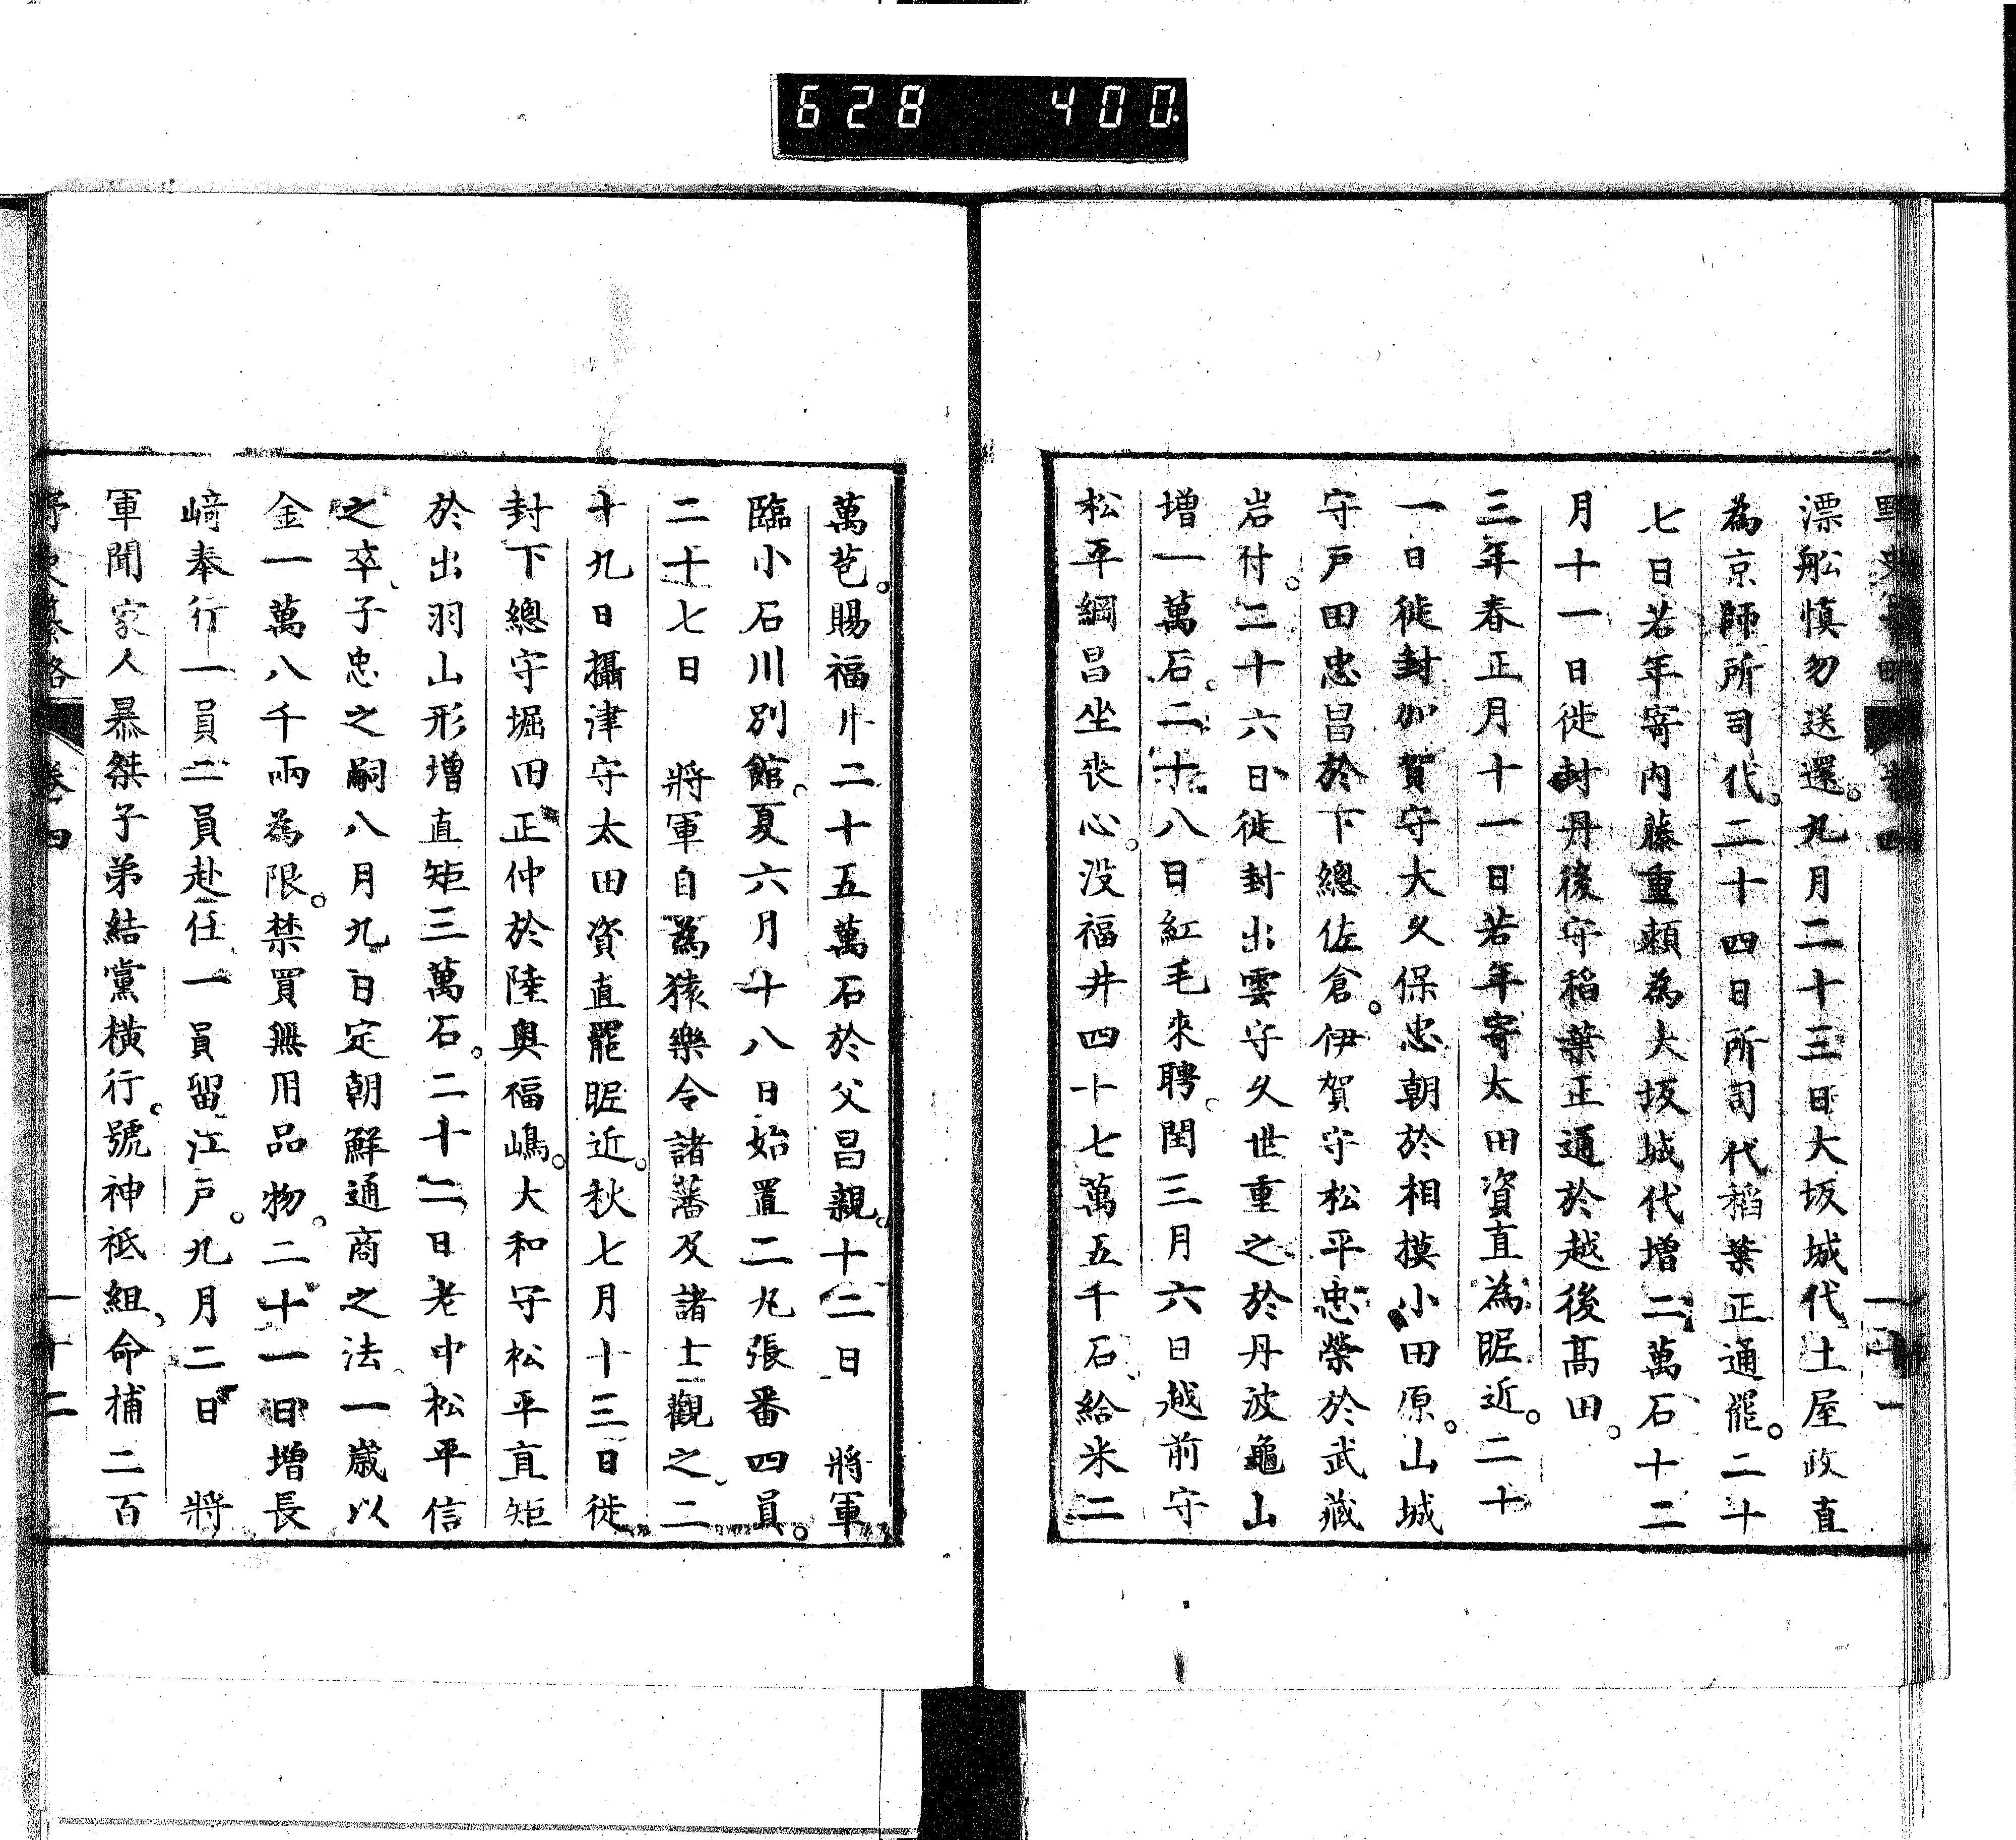 628 400
漂舩慎勿送還。九月二十三日大坂城代土屋政直
為京師所司代。二十四日所司代稻葉正通罷。二十
七日若年寄内藤重頼為大坂城代増二萬石十二
月十一日徙封丹後守稻葉正通於越後髙田。
三年春正月十一日若年寄太田資直為昵近。二十
一日徙封加賀守大久保忠朝於相摸小田原。山城
守戸田忠昌於下總佐倉。伊賀守松平忠榮於武藏
岩付。二十六日徙封出雲守久世重之於丹波龜山
増一萬石。二十八日紅毛來聘。閏三月六日越前守
松平綱昌坐喪心。没福井四十七萬五千石、給米二
萬苞。賜福井二十五萬石於父昌親。十二日 將軍
臨小石川別館。夏六月十八日始置二丸張番四員。
二十七日 將軍自為猿樂令諸藩及諸士觀之、二
十九日攝津守太田資直罷昵近。秋七月十三日徙
封下總守堀田正仲於陸奥福嶋。大和守松平直矩
於出羽山形増直矩三萬石。二十二日老中松平信
之卒、子忠之嗣八月九日定朝鮮通商之法。一歳以
金一萬八千兩為限。禁買無用品物。二十一日増長
﨑奉行一員二員赴任、一員留江戸。九月二日 將
軍聞家人暴桀子弟結黨横行。號神祗組、命捕二百
野史纂略 卷四 一十二